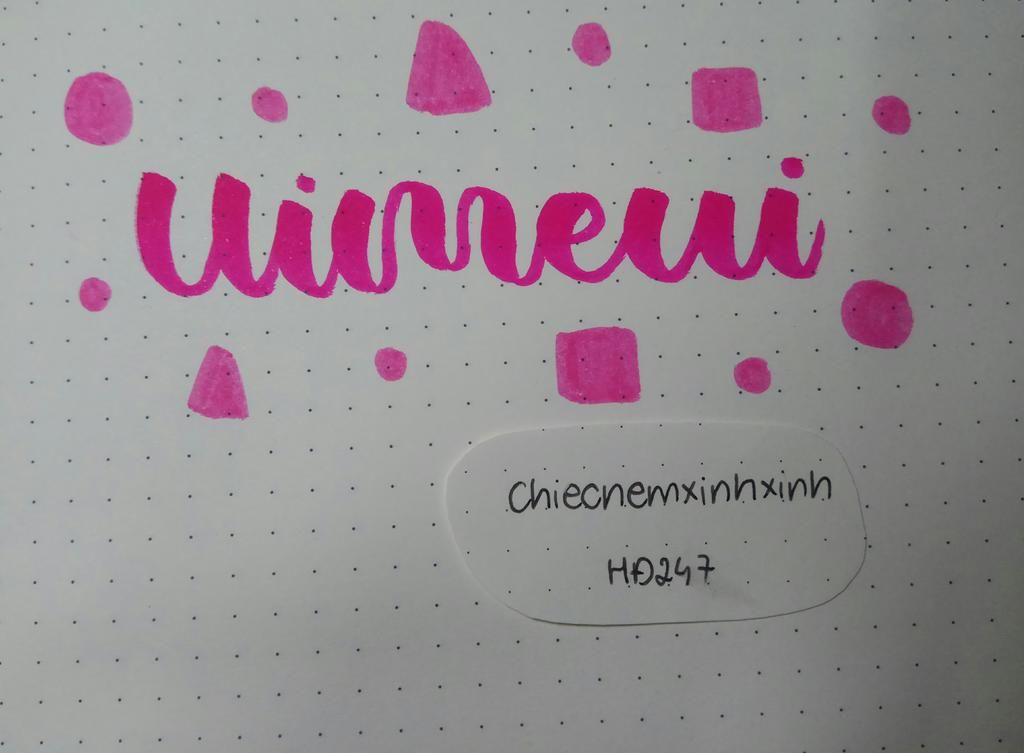 uimeui
chiecnemxinhxinh
HĐ247